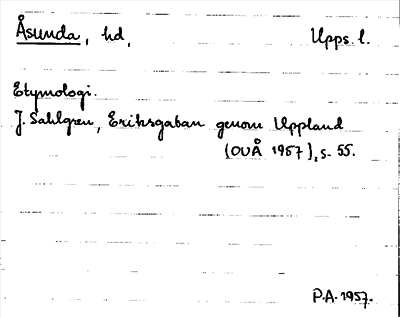 Åsunda, hd, Upps. l.
Etymologi.
J. Sahlgren, Eriksgatan genom Uppland
(OUÅ 1957), s. 55.
P.A. 1957.